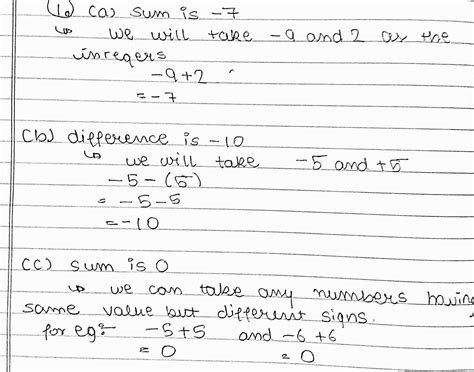 (1) (a) sum is -7
↳ we will take -9 and 2 as the
integers
-9+2
= -7
(b) difference is -10
↳ we will take -5 and +5
-5-(5)
= -5-5
= -10
(c) sum is 0
↳ we can take any numbers having
same value but different signs.
for eg:- -5+5 and -6+6
= 0 = 0